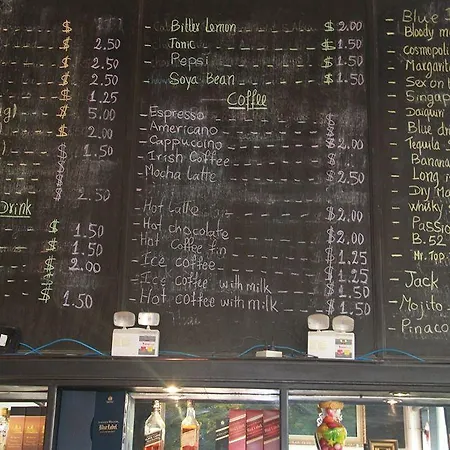 Bitter Lemon $ 2.00
Tonic $ 1.50
Pepsi $ 1.50
Soya Bean $ 1.50
Coffee
Espresso $
Americano $
Cappuccino $
Irish Coffee $
Mocha Latte $ 2.50
Hot Latte $ 2.00
Hot chocolate $ 2.00
Hot Coffee fin $ 1.25
Ice coffee $ 1.25
Ice coffee with milk $ 1.50
Hot coffee with milk $ 1.50
$ 2.50
$ 2.50
$ 2.50
$ 1.25
$ 5.00
$ 2.00
$ 1.50
2.50
Drink
$ 1.50
$ 1.50
$ 2.00
$ 1.50
Blue
Bloody m
cosmopoli
Margarit
Sex on
Singap
Daiquri
Blue
Tequila S
Banana
Long
Dry Ma
whisky
Passio
B.52
Mr. Top
Jack
Mojito
Pinaco